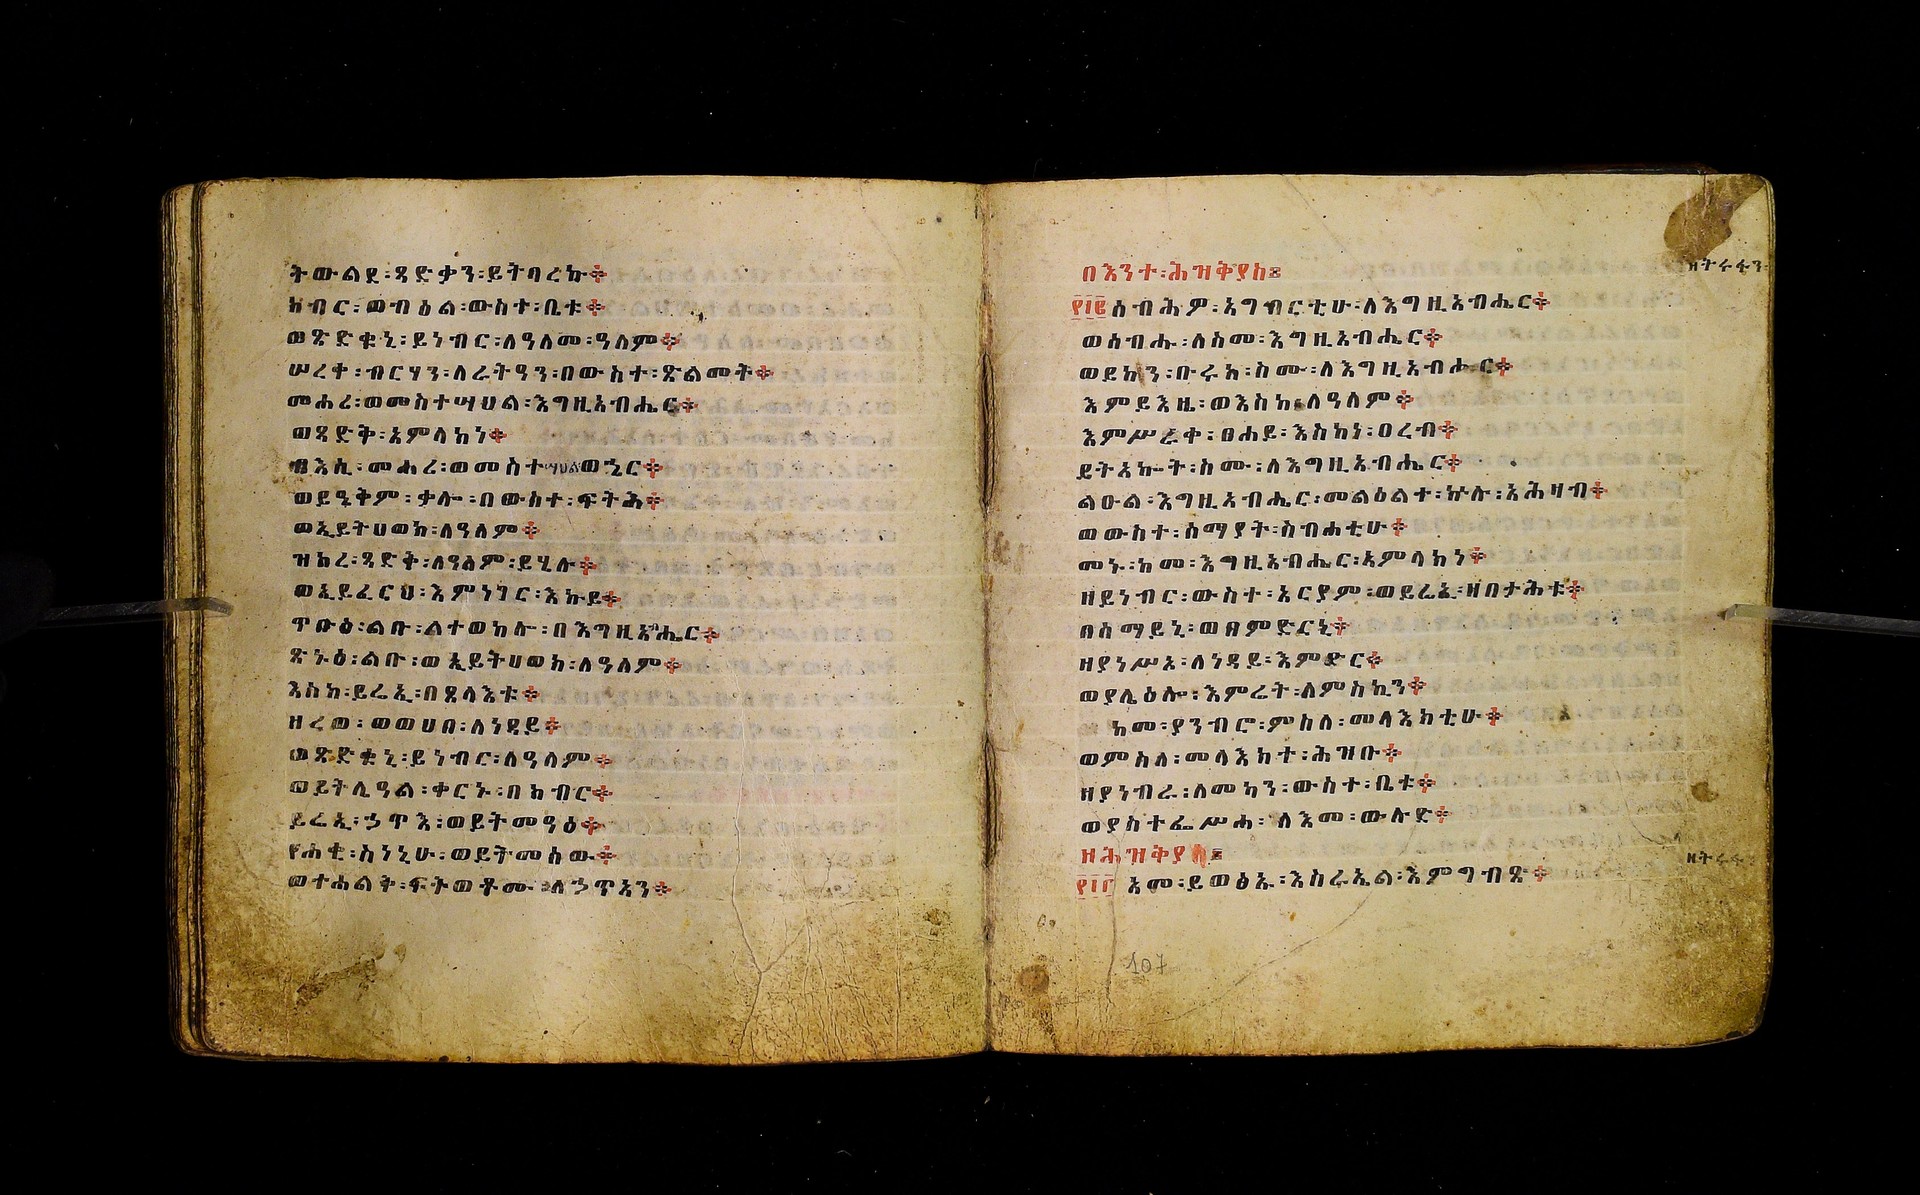 ትውልደ፡ጻድቃን፡ይትባረኩ፨
ክብር፡ወብዕል፡ውስተ፡ቤቱ፨
ወጽድቁኒ፡ይነብር፡ለዓለመ፡ዓለም፨
ሠረቀ፡ብርሃን፡ለራትዓን፡በውስተ፡ጽልመት፨
መሐረ፡ወመስተሣህል፡እግዚአብሔር፨
ወጻድቅ፡አምላክነ፨
ብእሲ፡መሐረ፡ወመስተሣህል፡ወኄር፨
ወይዔቅም፡ቃሎ፡በውስተ፡ፍትሕ፨
ወኢይትሀወክ፡ለዓለም፨
ዝክረ፡ጻድቅ፡ለዓለም፡ይሄሉ፨
ወኢይፈርህ፡እምነገር፡እኩይ፨
ጥቡዕ፡ልቡ፡ልተወከሉ፡በእግዚአብሔር፨
ጽኑዕ፡ልቡ፡ወኢይትሀወክ፡ለዓለም፨
እስከ፡ይሬኢ፡በጸላእቱ፨
ዘረወ፡ወወሀበ፡ለነዳይ፨
ወጽድቁኒ፡ይነብር፡ለዓለም፨
ወይትሌዓል፡ቀርኑ፡በክብር፨
ይሬኢ፡ኃጥእ፡ወይትመዓዕ፨
የሐቂ፡ስነኒሁ፡ወይትመሰው፨
ወተሐልቅ፡ፍትወቶሙ፡ለኃጥአን፨
በእንተ፡ሕዝቅያስ፨
፻፲፪ሰብሕዎ፡አግብርቲሁ፡ለእግዚአብሔር፨
ወሰብሑ፡ለስመ፡እግዚአብሔር፨
ወይኩን፡ቡሩከ፡ስሙ፡ለእግዚአብሔር፨
እምይእዜ፡ወእስከ፡ለዓለም፨
እምሥረቀ፡ፀሐይ፡እስከነ፡ዐረብ፨
ይትአኰት፡ስሙ፡ለእግዚአብሔር፨
ልዑል፡እግዚአብሔር፡መልዕልተ፡ኵሉ፡አሕዛብ፨
ወውስተ፡ሰማያት፡ስብሐቲሁ፨
መኑ፡ከመ፡እግዚአብሔር፡አምላክነ፨
ዘይነብር፡ውስተ፡አርያም፡ወይሬኢ፡ዘበታሕቱ፨
በሰማይኒ፡ወበምድርኒ፨
ዘያነሥአ፡ለነዳይ፡እምድር፨
ወያሌዕሎ፡እምሬት፡ለምስኪን፨
ከመ፡ያንብሮ፡ምስለ፡መላእክቲሁ፨
ወምስለ፡መላእክተ፡ሕዝቡ፨
ዘያነብራ፡ለመካን፡ውስተ፡ቤቱ፨
ወያስተፌሥሐ፡ለእመ፡ውሉድ፨
ዘሕዝቅያስ፨
፻፲፫ አመ፡ይወፅኡ፡እስራኤል፡እምግብጽ፨
107